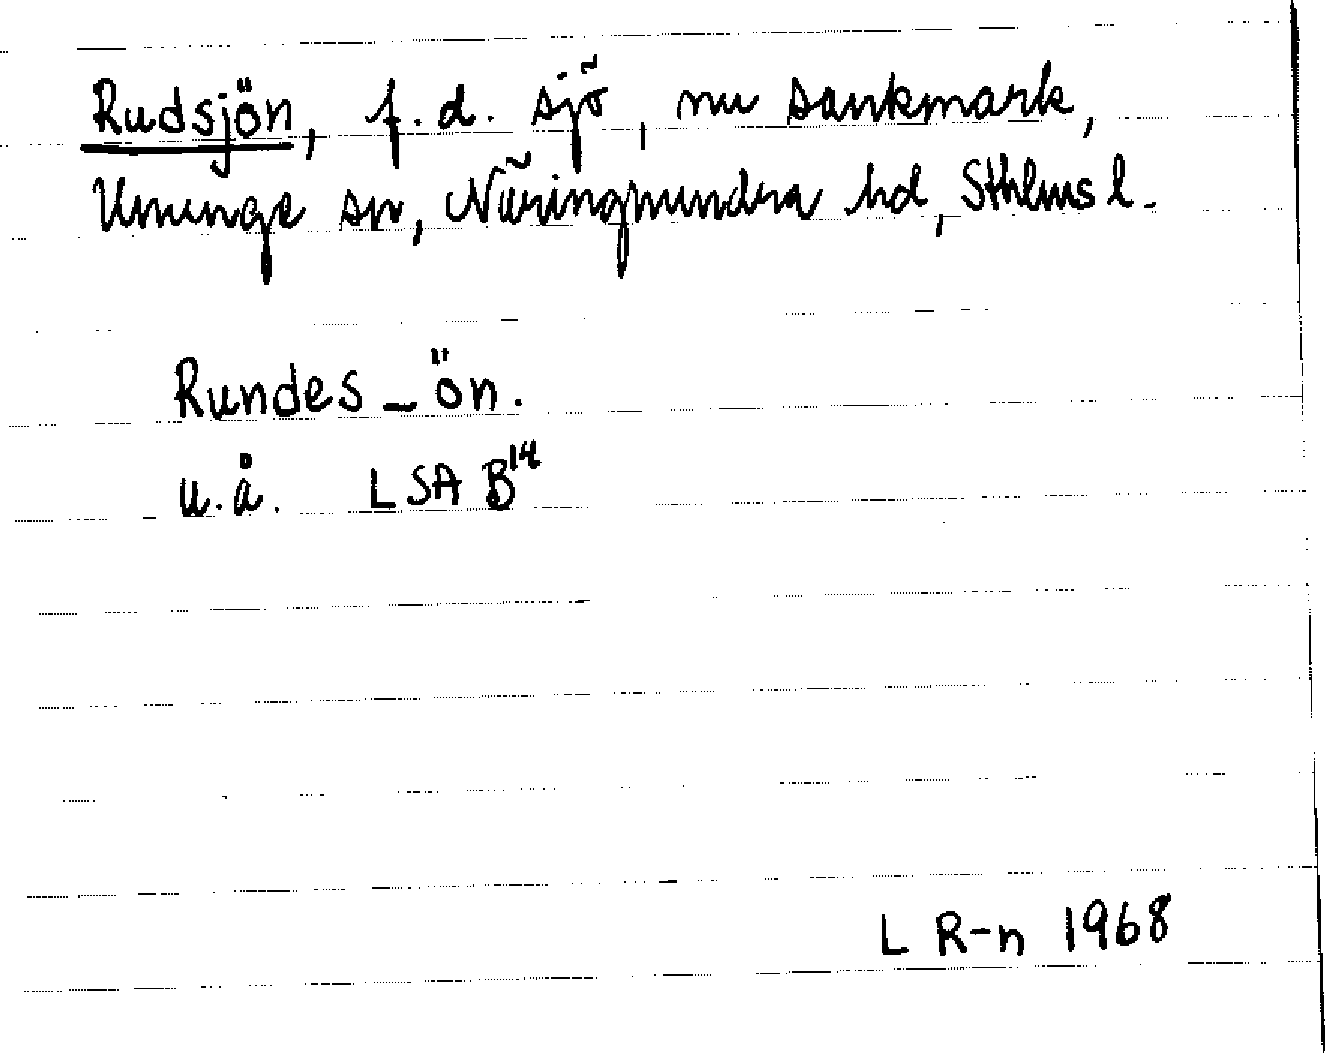 Rudsjön, f.d. sjö, nu sankmark,
Ununge sn, Närdinghundra hd, Sthlms l.
Rundes-ön.
u.å. LSA B¹⁴
L R-n 1968